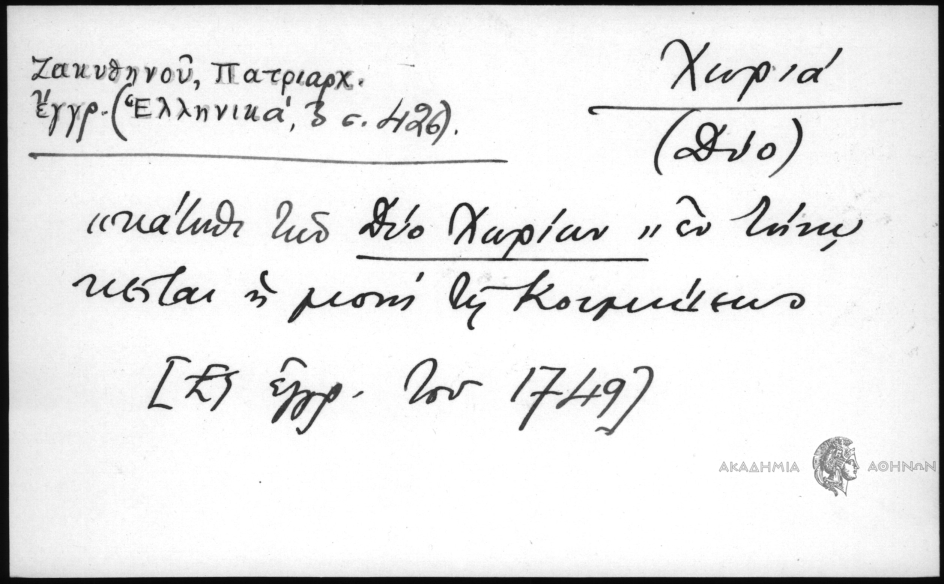 Ζακυθηνοῦ, Πατριαρχ.
ἔγγρ. (Ἑλληνικά, 3 σ. 426).
Χωριά
(Δύο)
"κάτωθι τῶν Δύο Χωρίων" ἐν Τήνῳ
κεῖται ἡ μονή τῆς Κοιμήσεως
[Ἐξ ἐγγρ. του 1749]
ΑΚΑΔΗΜΙΑ ΑΘΗΝΩΝ